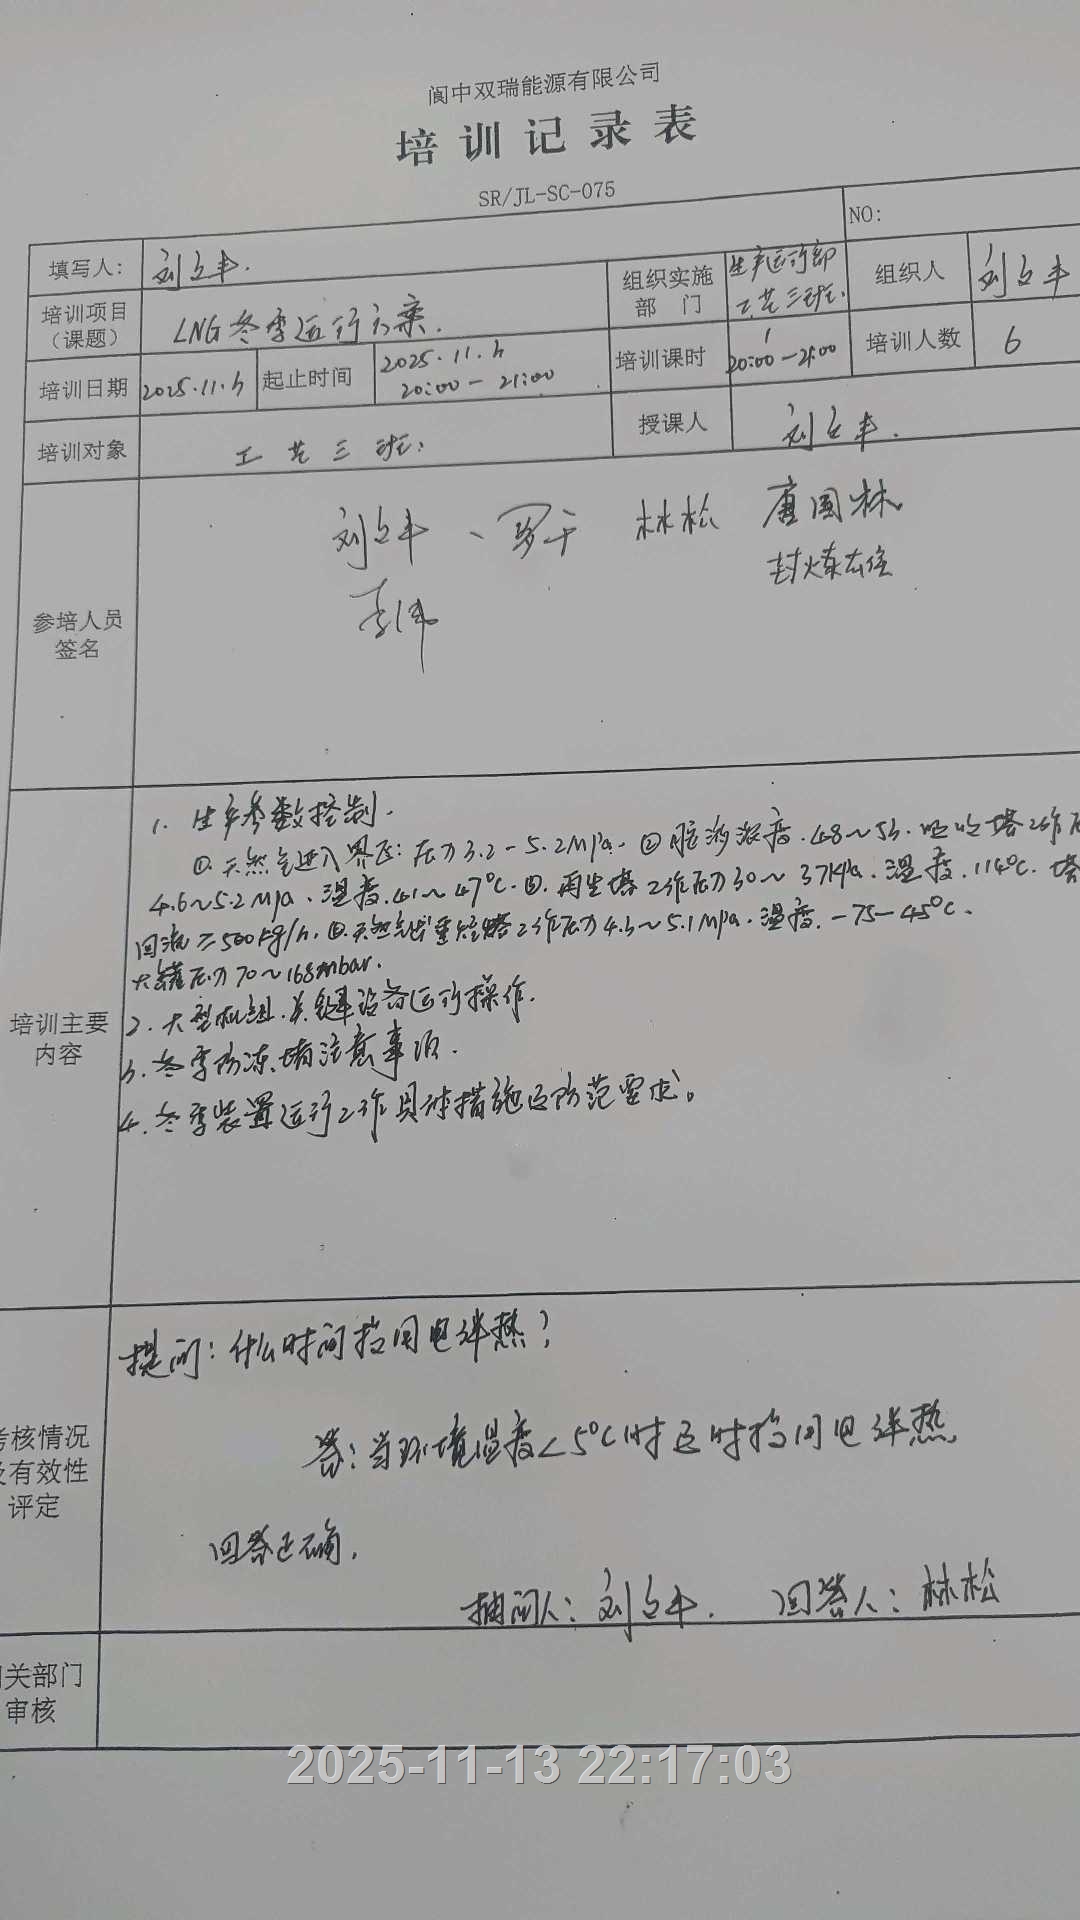 阆中双瑞能源有限公司
培训记录表
SR/JL-SC-075
NO:
填写人: 刘立丰.
组织实施部门 生产运行部 工艺三班.
组织人 刘立丰
培训项目（课题） LNG冬季运行方案.
培训日期 2025.11.
起止时间 2025.11. 20:00-21:00
培训课时 1 20:00-21:00
培训人数 6
培训对象 工艺三班.
授课人 刘立丰.
参培人员签名
刘立丰、罗千 林松 唐国林
李伟
培训主要内容
1. 生产参数控制.
①.天然气进入界区: 压力3.2-5.2MPa. ②胺液浓度.48~53. 吸收塔工作压
4.6~5.2MPa.温度.41~47℃.③.再生塔工作压力30~37KPa.温度.114℃.塔
回流≥500kg/h.④.天然气重烃塔工作压力4.5~5.1MPa.温度.-75-45℃.
大罐压力70~168mbar.
2.大型机组.关键设备运行操作.
3.冬季防冻堵注意事项.
4.冬季装置运行工作具体措施及防范要求。
考核情况及有效性评定
提问:什么时间投用电伴热?
答:当环境温度<5℃时及时投用电伴热
回答正确.
抽问人:刘立丰. 回答人:林松
关部门审核
2025-11-13 22:17:03